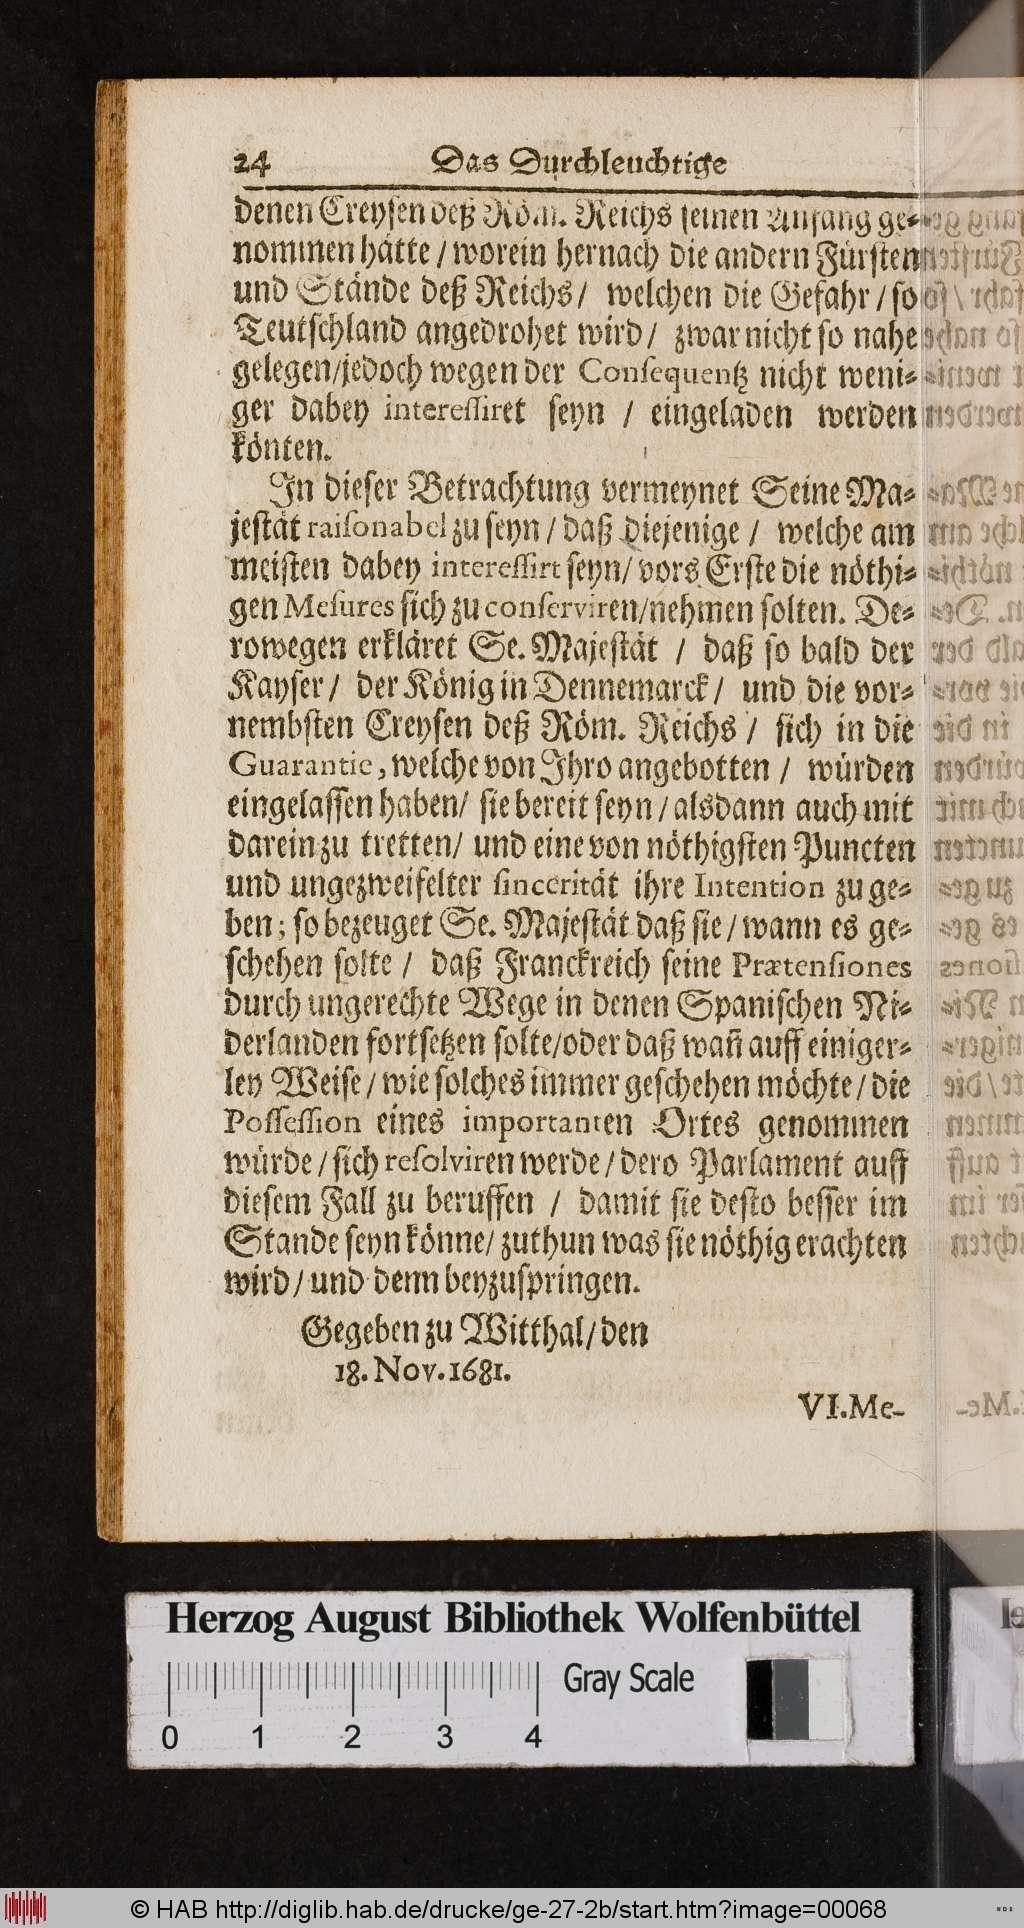 24 Das Durchleuchtige
denen Creysen deß Röm. Reichs seinen Anfang ge-
nommen hätte / worein hernach die andern Fürsten
und Stände deß Reichs / welchen die Gefahr / so
Teutschland angedrohet wird / zwar nicht so nahe
gelegen/jedoch wegen der Consequentz nicht weni-
ger dabey interessiret seyn / eingeladen werden
könten.
In dieser Betrachtung vermeynet Seine Ma-
jestät raisonabel zu seyn / daß diejenige / welche am
meisten dabey interessirt seyn/ vors Erste die nöthi-
gen Mesures sich zu conserviren/nehmen solten. De-
rowegen erkläret Se. Majestät / daß so bald der
Kayser / der König in Dennemarck / und die vor-
nembsten Creysen deß Röm. Reichs / sich in die
Guarantie, welche von Ihro angebotten / würden
eingelassen haben/ sie bereit seyn / alsdann auch mit
darein zu tretten/ und eine von nöthigsten Puncten
und ungezweifelter sincerität ihre Intention zu ge-
ben; so bezeuget Se. Majestät daß sie / wann es ge-
schehen solte / daß Franckreich seine Prætensiones
durch ungerechte Wege in denen Spanischen Ni-
derlanden fortsetzen solte/oder daß wañ auff einiger-
ley Weise / wie solches immer geschehen möchte / die
Possession eines importanten Ortes genommen
würde / sich resolviren werde / dero Parlament auff
diesem Fall zu beruffen / damit sie desto besser im
Stande seyn könne/ zuthun was sie nöthig erachten
wird / und denn beyzuspringen.
Gegeben zu Witthal/ den
18. Nov. 1681.
VI. Me-
Herzog August Bibliothek Wolfenbüttel
Gray Scale
0 1 2 3 4
© HAB http://diglib.hab.de/drucke/ge-27-2b/start.htm?image=00068